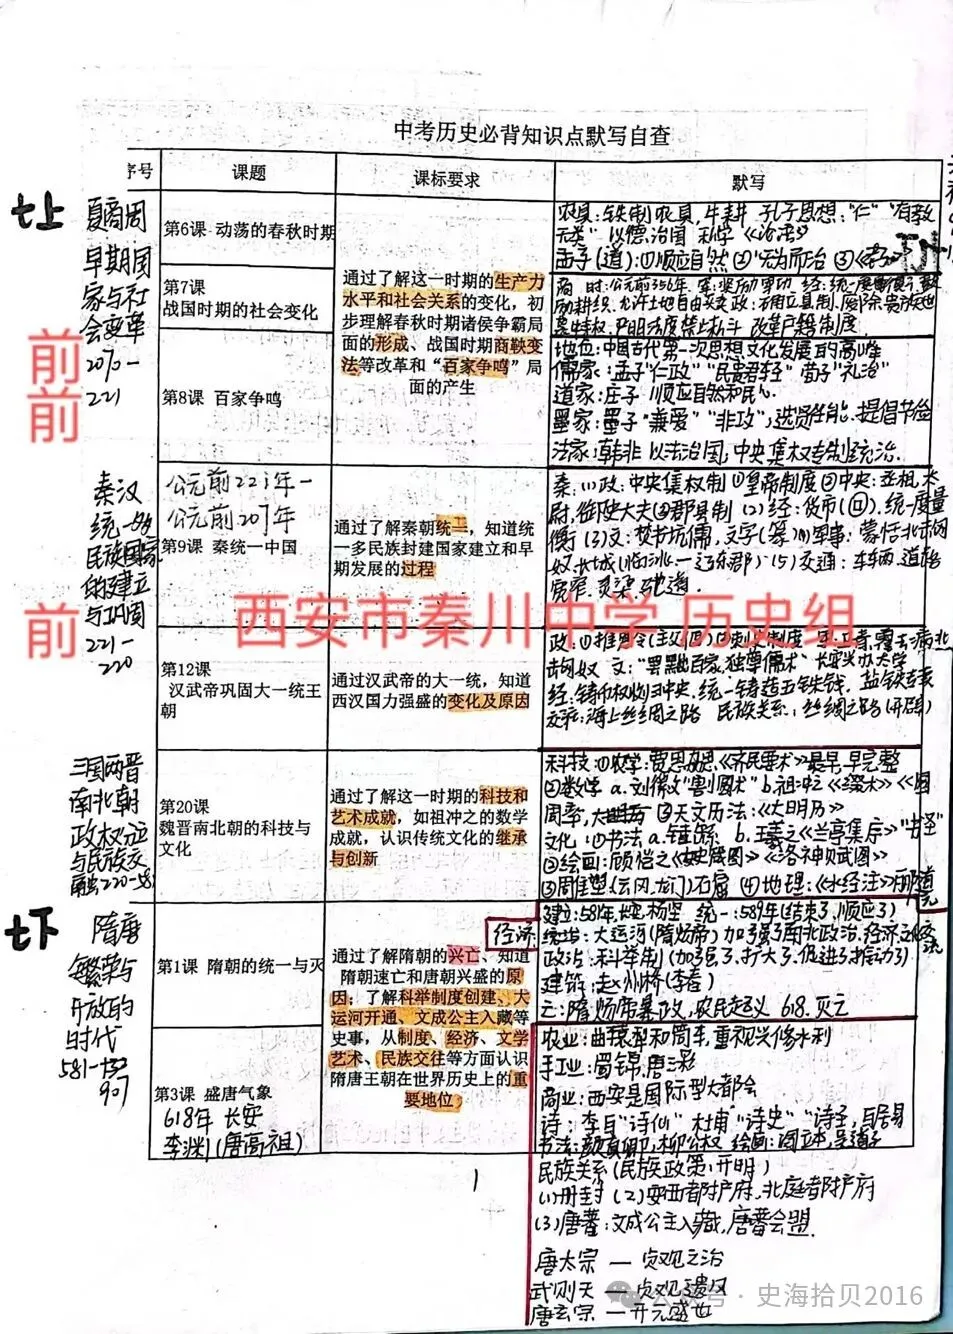 中考历史必背知识点默写自查
序号
课题
课标要求
默写
七上
夏商周
早期国
家与社
会变革
2070-
221
前
前
第6课 动荡的春秋时期
第7课
战国时期的社会变化
第8课 百家争鸣
通过了解这一时期的生产力
水平和社会关系的变化，初
步理解春秋时期诸侯争霸局
面的形成、战国时期商鞅变
法等改革和“百家争鸣”局
面的产生
农具：铁制农具，牛耕 孔子思想：“仁”“有教
无类” 以德治国 私学《论语》
老子(道)：①顺应自然②无为而治③
商 时：公元前356年 军：奖励军功 经：统一度量衡，
励耕织，允许土地自由买卖 政：确立县制，废除贵族世
袭特权，严明法度禁止私斗 改革户籍制度
地位：中国古代第一次思想文化发展的高峰
儒家：孟子“仁政”“民贵君轻” 荀子“礼治”
道家：庄子 顺应自然和民心
墨家：墨子“兼爱”“非攻”，选贤任能，提倡节俭
法家：韩非 以法治国，中央集权专制统治.
秦汉
统一多
民族国家
的建立
与巩固
221-
220
前
公元前221年-
公元前207年
第9课 秦统一中国
通过了解秦朝统一，知道统
一多民族封建国家建立和早
期发展的过程
秦：(1)政：中央集权制 ①皇帝制度 ②中央：丞相、太
尉，御史大夫 ③郡县制 (2)经：货币(圆)，统一度量
衡 (3)文：焚书坑儒，文字(篆) (4)军事：蒙恬北击匈
奴 长城(临洮—辽东郡) (5)交通：车辆、道路
宽窄 灵渠 驰道
西安市秦川中学 历史组
第12课
汉武帝巩固大一统王
朝
通过汉武帝的大一统，知道
西汉国力强盛的变化及原因
政：①推恩令(主父偃) ②刺史制度 军：卫青、霍去病北
击匈奴 文：“罢黜百家，独尊儒术” 长安兴办太学
经：铸币权收归中央，统一铸造五铢钱，盐铁专卖
交流：海上丝绸之路 民族关系：丝绸之路(开辟)
三国两晋
南北朝
政权分立
与民族交
融220-589
第20课
魏晋南北朝的科技与
文化
通过了解这一时期的科技和
艺术成就，如祖冲之的数学
成就，认识传统文化的继承
与创新
科技：①农学：贾思勰《齐民要术》最早、最完整
②数学 a.刘徽“割圆术” b.祖冲之《缀术》《圆
周率》 ③天文历法：《大明历》
文化：①书法 a.钟繇 b.王羲之《兰亭集序》“书圣”
②绘画：顾恺之《女史箴图》《洛神赋图》
③雕塑(云冈、龙门)石窟 (4)地理：《水经注》郦道
元
七下
隋唐
繁荣与
开放的
时代
581-
907
第1课 隋朝的统一与灭
通过了解隋朝的兴亡、知道
隋朝速亡和唐朝兴盛的原
因；了解科举制度创建、大
运河开通、文成公主入藏等
史事，从制度、经济、文学
艺术、民族交往等方面认识
隋唐王朝在世界历史上的重
要地位
经济
建立：581年，长安，杨坚 统一：589年(结束了，顺应了)
统治：大运河(隋炀帝) 加强了南北政治、经济文化交流
政治：科举制(加强了、扩大了、促进了、推动了)
建筑：赵州桥(李春)
亡：隋炀帝暴政，农民起义 618.灭亡
第3课 盛唐气象
618年 长安
李渊(唐高祖)
农业：曲辕犁和筒车，重视兴修水利
手工业：蜀锦，唐三彩
商业：西安是国际型大都会
诗：李白“诗仙” 杜甫“诗史”“诗圣” 白居易
书法：颜真卿，柳公权 绘画：阎立本，吴道子
民族关系(民族政策：开明)
(1)册封 (2)安西都护府、北庭都护府
(3)唐蕃：文成公主入藏，唐蕃会盟.
唐太宗 — 贞观之治
武则天 — 贞观遗风
唐玄宗 — 开元盛世
1
公众号 · 史海拾贝2016